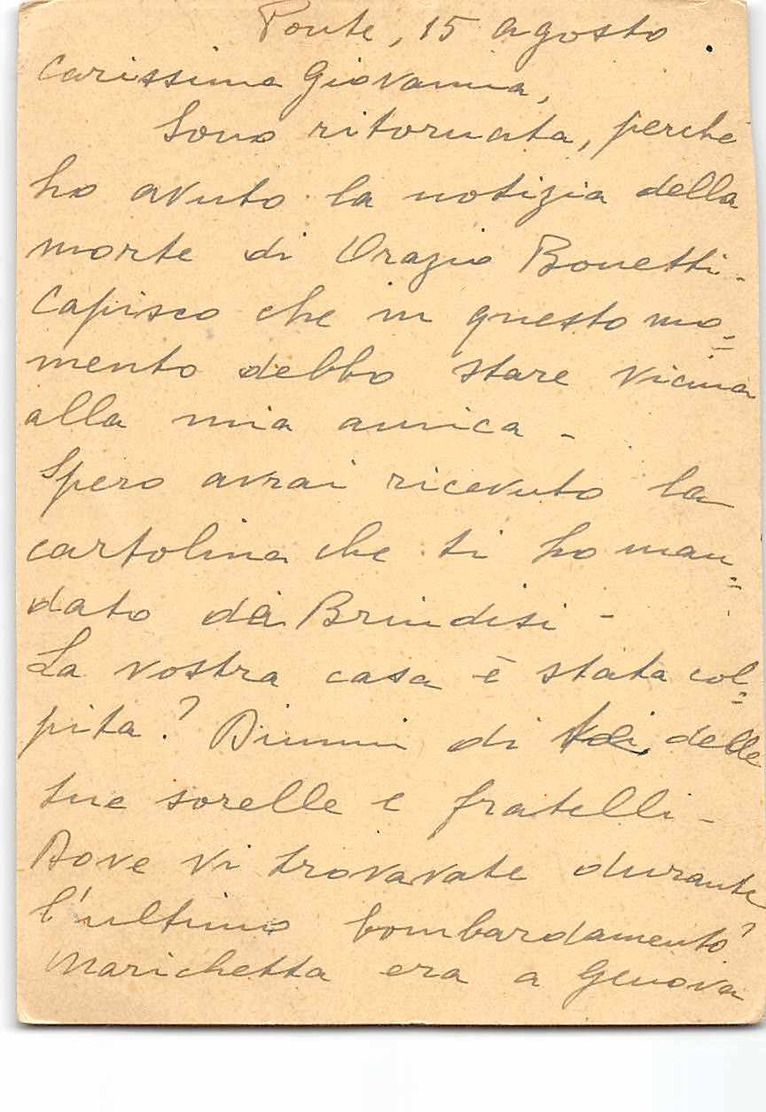 Ponte, 15 agosto
Carissima Giovanna,
Sono ritornata, perchè
ho avuto la notizia della
morte di Orazio Bonetti -
Capisco che in questo mo=
mento debbo stare vicina
alla mia amica -
Spero avrai ricevuto la
cartolina che ti ho man=
dato da Brindisi -
La vostra casa è stata col=
pita? Dimmi di te, delle
tue sorelle e fratelli -
Dove vi trovavate durante
l'ultimo bombardamento?
Marichetta era a Genova